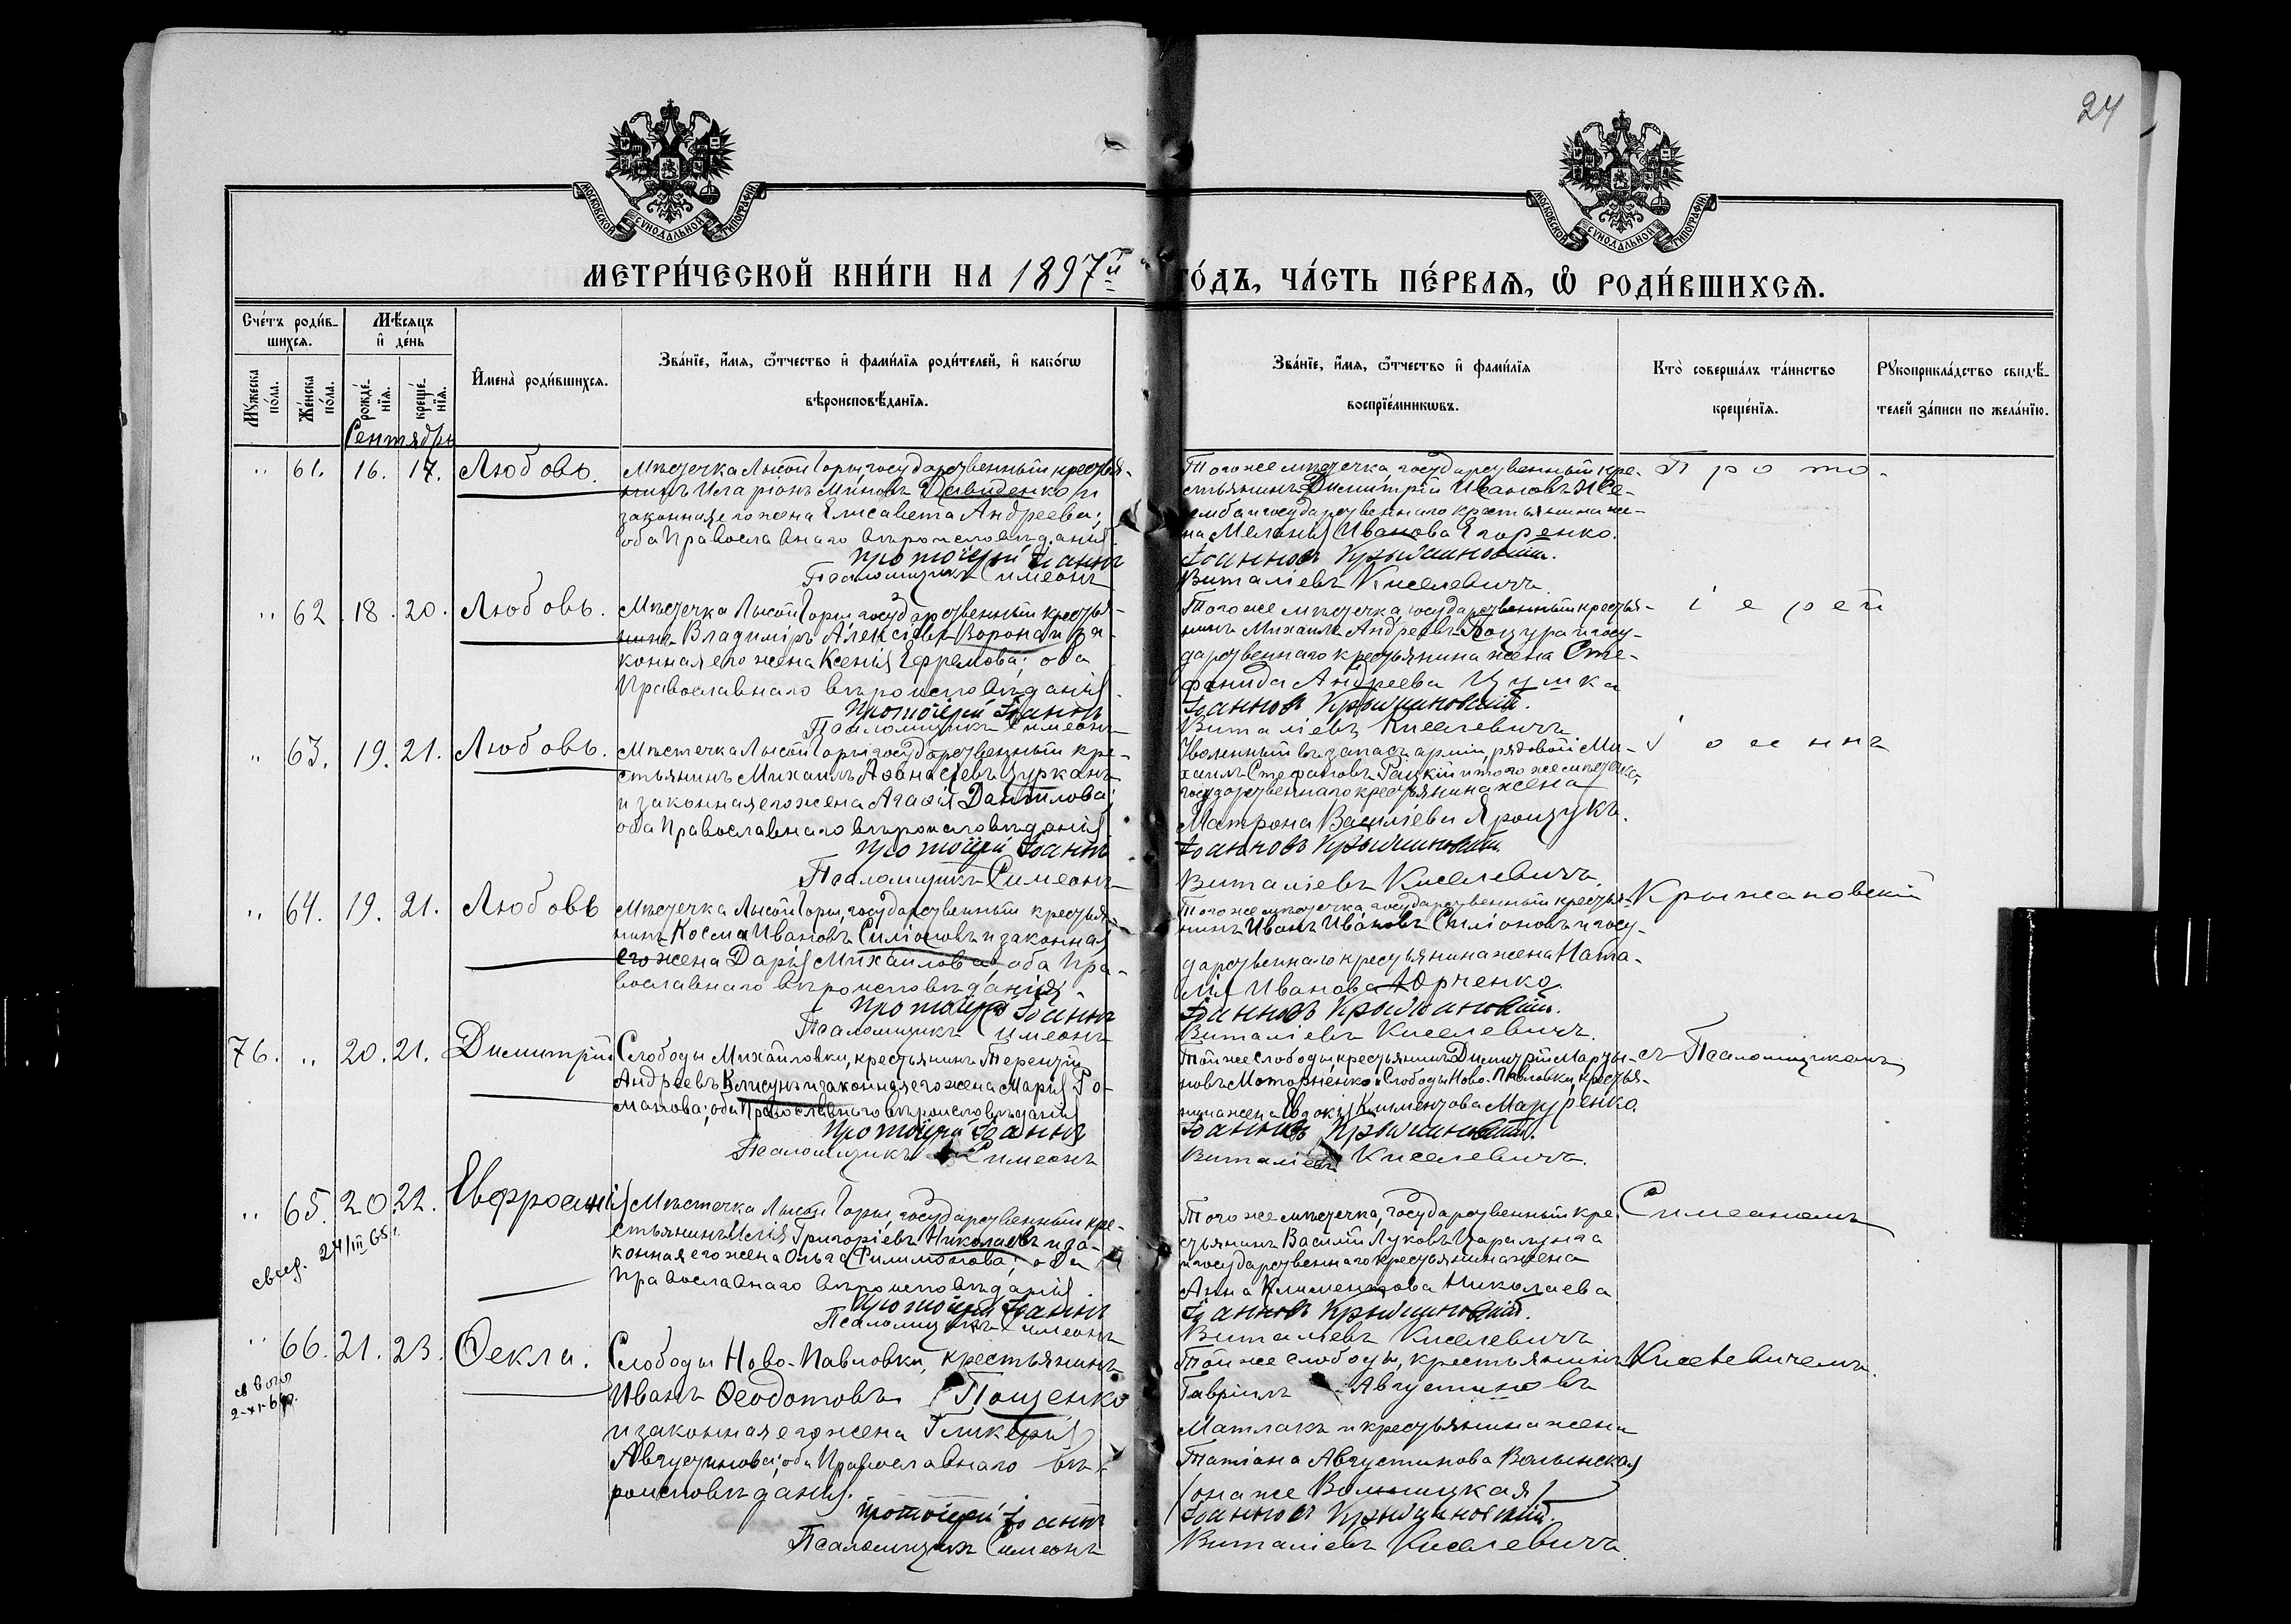 24
МОСКОВСКОЙ СѴНОДАЛЬНОЙ ТИПОГРАФІИ
МОСКОВСКОЙ СѴНОДАЛЬНОЙ ТИПОГРАФІИ
МЕТРИ́ЧЕСКОЙ КНИ́ГИ НА 1897й ГО́ДЪ, ЧА́СТЬ ПЕ́РВАѦ, Ѡ҆ РОДИ́ВШИХСѦ.
Сче́тъ роди́в-
шихсѧ.
Мꙋ́жеска по́ла.
Же́нска по́ла.
Мѣ́сѧцъ
и҆ де́нь
рожде́-
нїѧ.
креще́-
нїѧ.
И҆мена̀ роди́вшихсѧ.
Зва́нїе, и҆́мѧ, ѻ҆́тчество и҆ фами́лїѧ роди́телей, и҆ како́гѡ
вѣроисповѣ́данїѧ.
Зва́нїе, и҆́мѧ, ѻ҆́тчество и҆ фами́лїѧ
воспрїе́мникѡвъ.
Кто̀ соверша́лъ та́инство
креще́нїѧ.
Рꙋкоприкла́дство свидѣ́-
телей за́писи по жела́нїю.
Сентябрь
" 61. 16. 17. Любовь.
Мѣстечка Лысой Горы, государственный крестья-
нинъ Иларіонъ Миновъ Давиденко и
законная его жена Елисавета Андреева;
оба Православнаго вѣроисповѣданія.
Протоіерей Іоаннъ
Псаломщикъ Симеонъ
Тогоже мѣстечка, государственный кре-
стьянинъ Димитрій Ивановъ
и государственнаго крестьянина же-
на Меланія Иванова Егоренко.
Іоанновъ Крыжановскій.
Виталіевъ Киселевичъ.
Прото-
" 62. 18. 20. Любовь.
Мѣстечка Лысой Горы государственный крестья-
нинъ Владиміръ Алексіевъ Ворона и за-
конная его жена Ксенія Ефремова; оба
Православнаго вѣроисповѣданія.
Протоіерей Іоаннъ
Псаломщикъ Симеонъ
Тогоже мѣстечка, государственный крестья-
нинъ Михаилъ Андреевъ Поцура и госу-
дарственнаго крестьянина жена Сте-
фанида Андреева Цушка
Іоанновъ Крыжановскій.
Виталіевъ Киселевичъ.
іерей
" 63. 19. 21. Любовь.
Мѣстечка Лысой Горы государственный кре-
стьянинъ Михаилъ Аѳанасіевъ Цурканъ
и законная его жена Агаѳія Даніилова;
оба Православнаго вѣроисповѣданія.
Протоіерей Іоаннъ
Псаломщикъ Симеонъ
Уволенный въ запасъ арміи, рядовой Ми-
хаилъ Стефановъ Рацкій и того же мѣстечка,
государственнаго крестьянина жена
Матрона Василіева Яроцукъ.
Іоанновъ Крыжановскій.
Виталіевъ Киселевичъ.
Іоаннъ
" 64. 19. 21. Любовь
Мѣстечка Лысой Горы, государственный крестья-
нинъ Косма Ивановъ Силіоновъ и законная
его жена Дарія Михаилова, оба Пра-
вославнаго вѣроисповѣданія.
Протоіерей Іоаннъ
Псаломщикъ Симеонъ
Того же мѣстечка государственный крестья-
нинъ Иванъ Ивановъ Силіоновъ и госу-
дарственнаго крестьянина жена Ната-
лія Иванова Юрченко.
Іоанновъ Крыжановскій.
Виталіевъ Киселевичъ.
Крыжановскій
76. " 20. 21. Димитрій
Слободы Михайловки, крестьянинъ Терентій
Андреевъ Клисунъ и законная его жена Марія Ро-
манова; оба Православнаго вѣроисповѣданія
Протоіерей Іоаннъ
Псаломщикъ Симеонъ
Той же Слободы крестьянинъ Димитрій Марты-
новъ Моторненко и Слободы Ново-Павловки, крестья-
нина жена Евдокія Климентова Мазуренко.
Іоанновъ Крыжановскій.
Виталіевъ Киселевичъ.
съ Псаломщикомъ
" 65. 20. 22. Евфросинія
свид. 24/III 65 г.
Мѣстечка Лысой Горы, государственный кре-
стьянинъ Илія Григоріевъ Николаевъ и за-
конная его жена Ольга Филимонова; оба
Православнаго вѣроисповѣданія.
Протоіерей Іоаннъ
Псаломщикъ Симеонъ
Того же мѣстечка, государственный кре-
стьянинъ Василій Луковъ Царалунга
и государственнаго крестьянина жена
Анна Климентова Николаева
Іоанновъ Крыжановскій.
Виталіевъ Киселевичъ
Симеономъ
" 66. 21. 23. Ѳекла.
Слободы Ново-Павловки, крестьянинъ
Иванъ Ѳеодотовъ Пощенко
и законная его жена Гликерія
Августинова; оба Православнаго вѣ-
роисповѣданія.
Протоіерей Іоаннъ
Псаломщикъ Симеонъ
Той же слободы, крестьянинъ
Гавріилъ Августиновъ
Матлакъ и крестьянина жена
Татіана Августинова Волынская
/она же Волницкая/
Іоанновъ Крыжановскій.
Виталіевъ Киселевичъ.
Киселевичемъ.